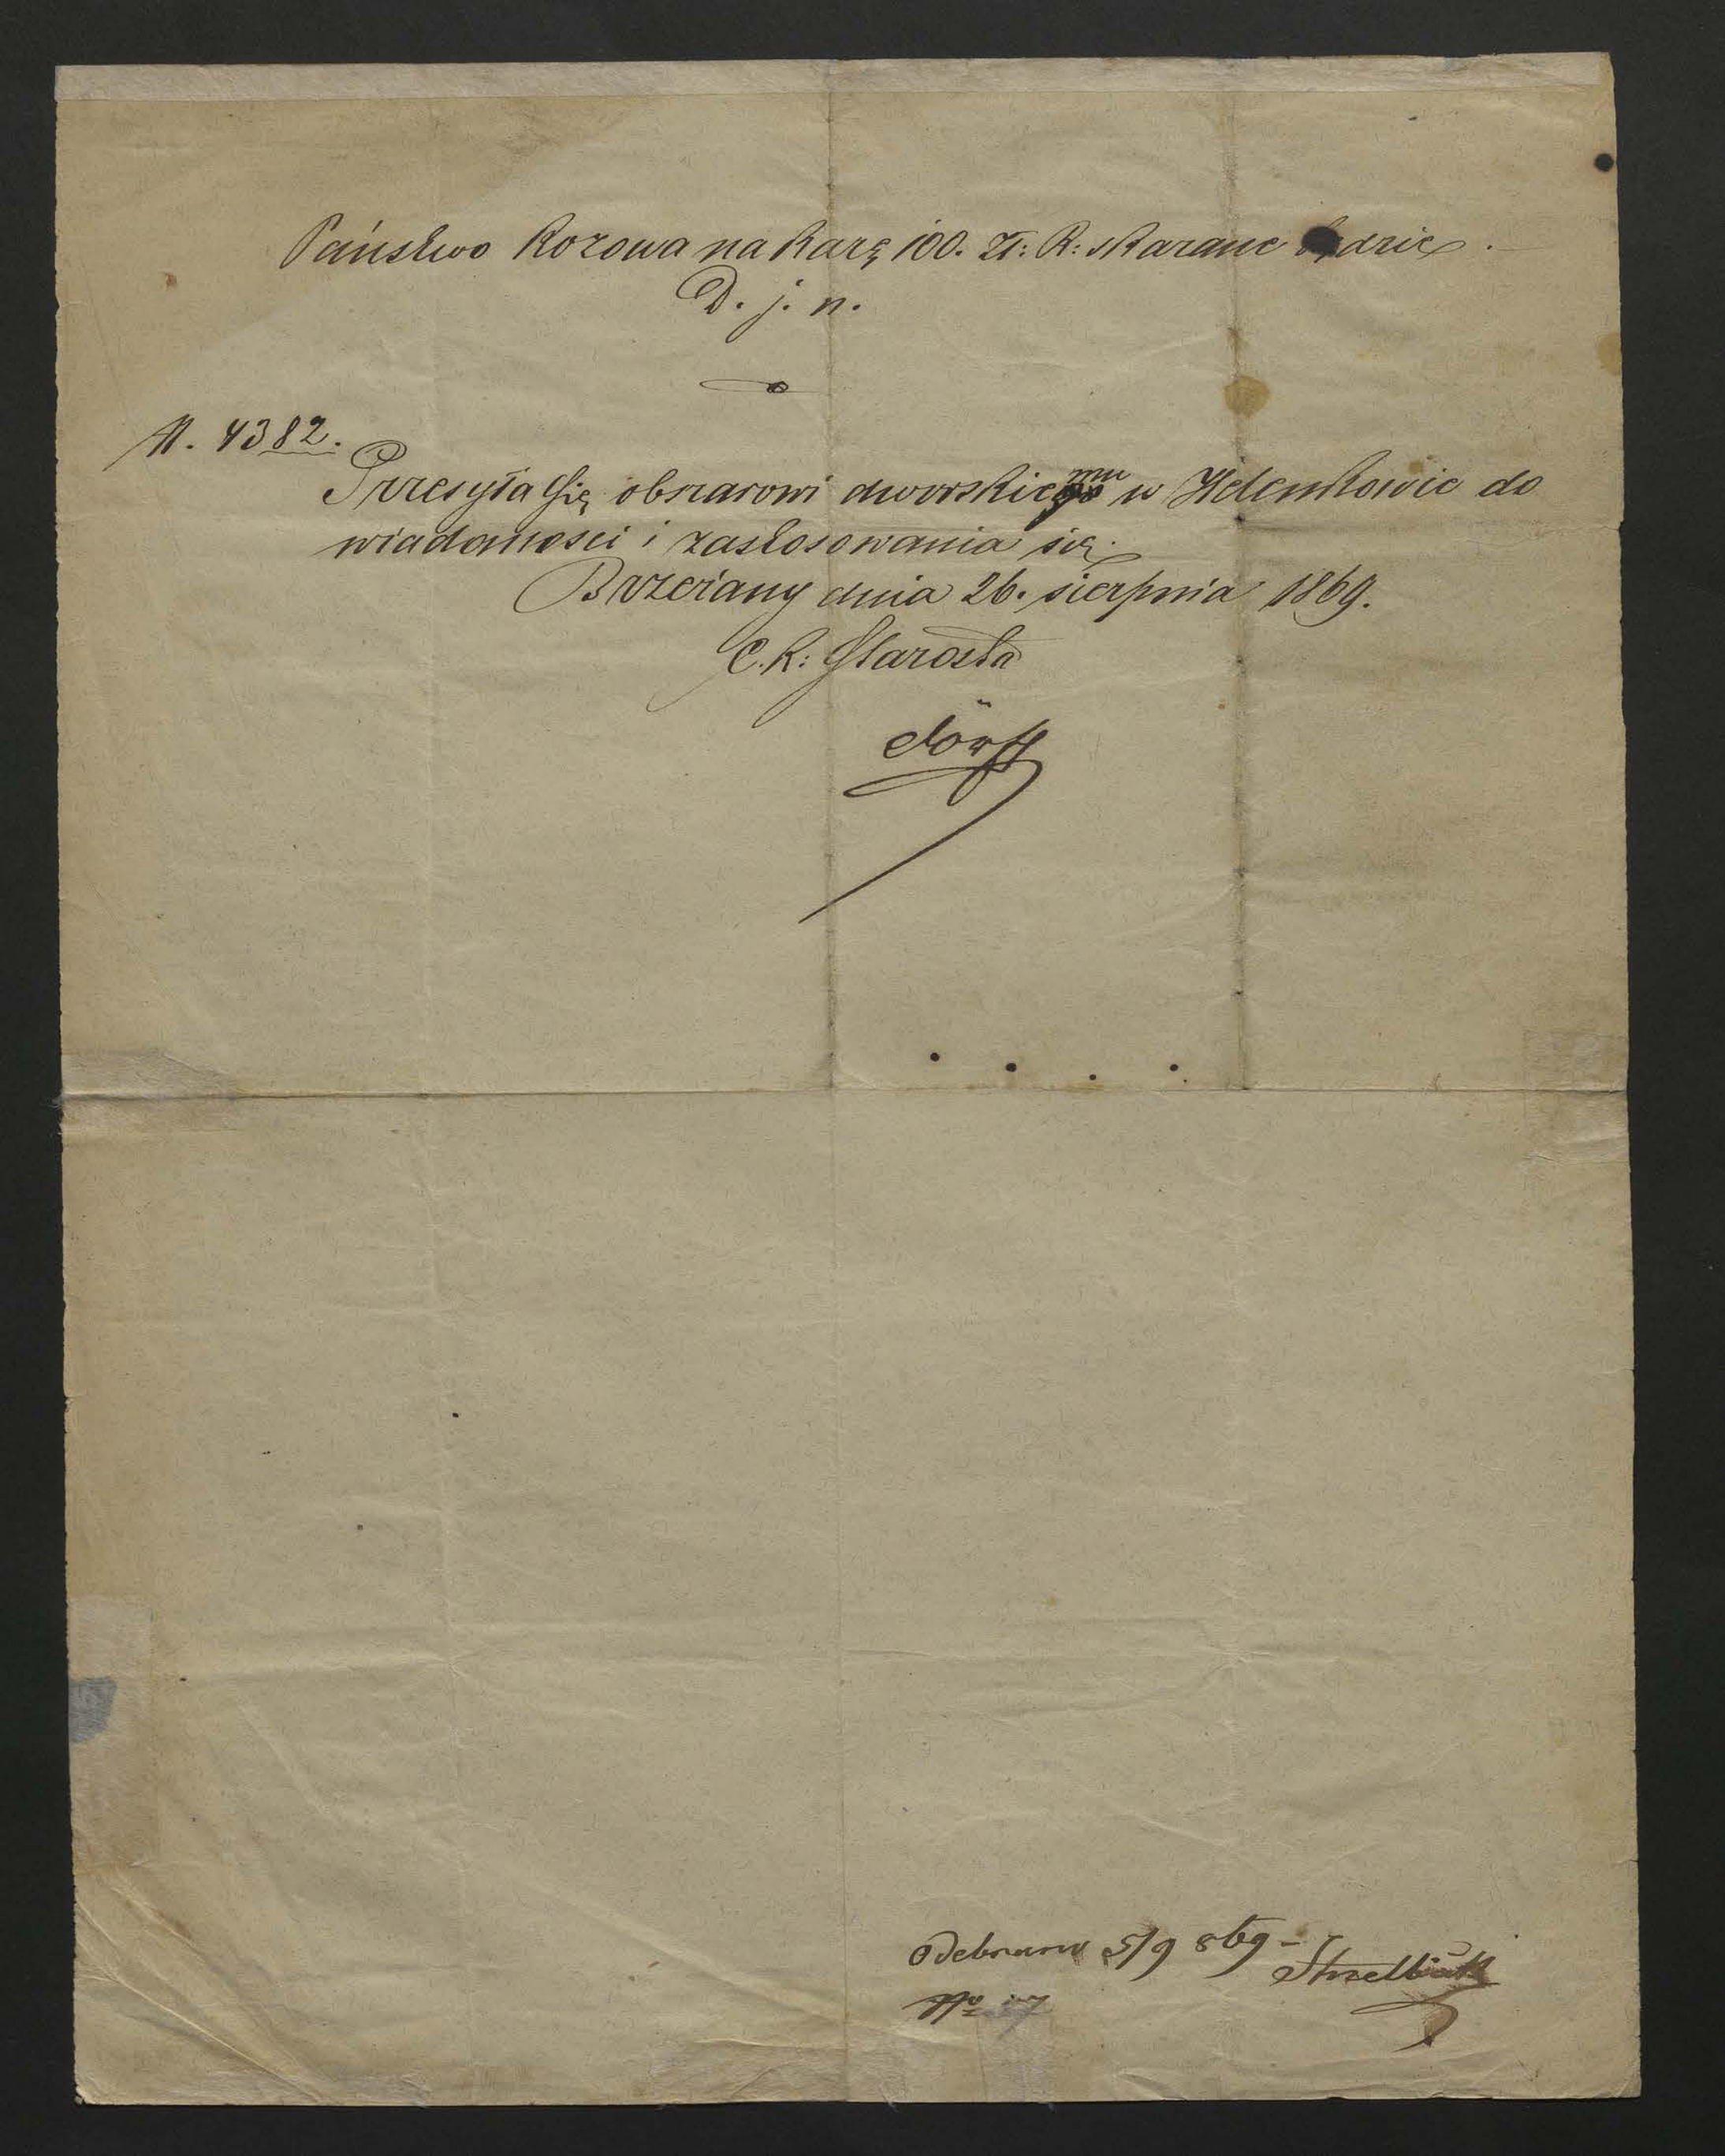 Państwo Kozowa na karę 100. Zł: R: skarane będzie.
D. j. n.
N. 4382.
Przesyła się obszarowi dworskiemu w Helenkowie do
wiadomości i zastosowania się.
Brzeżany dnia 26. sierpnia 1869.
C. k: Starosta
Odebrano 5/9 869 –
No